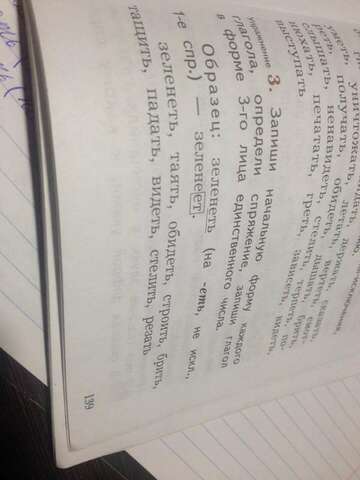 уничтожать,
уметь, получать, летать, держать,
слышать, ненавидеть, вертеть,
нюхать, печатать, греть, терпеть, брить,
выступать зависеть, видеть,
упражнение 3. Запиши начальную форму каждого
глагола, определи спряжение, запиши глагол
в форме 3-го лица единственного числа.
Образец: зеленеть (на -еть, не искл.,
1-е спр.) — зеленеет.
зеленеть, таять, обидеть, строить, брить,
тащить, падать, видеть, стелить, резать
139